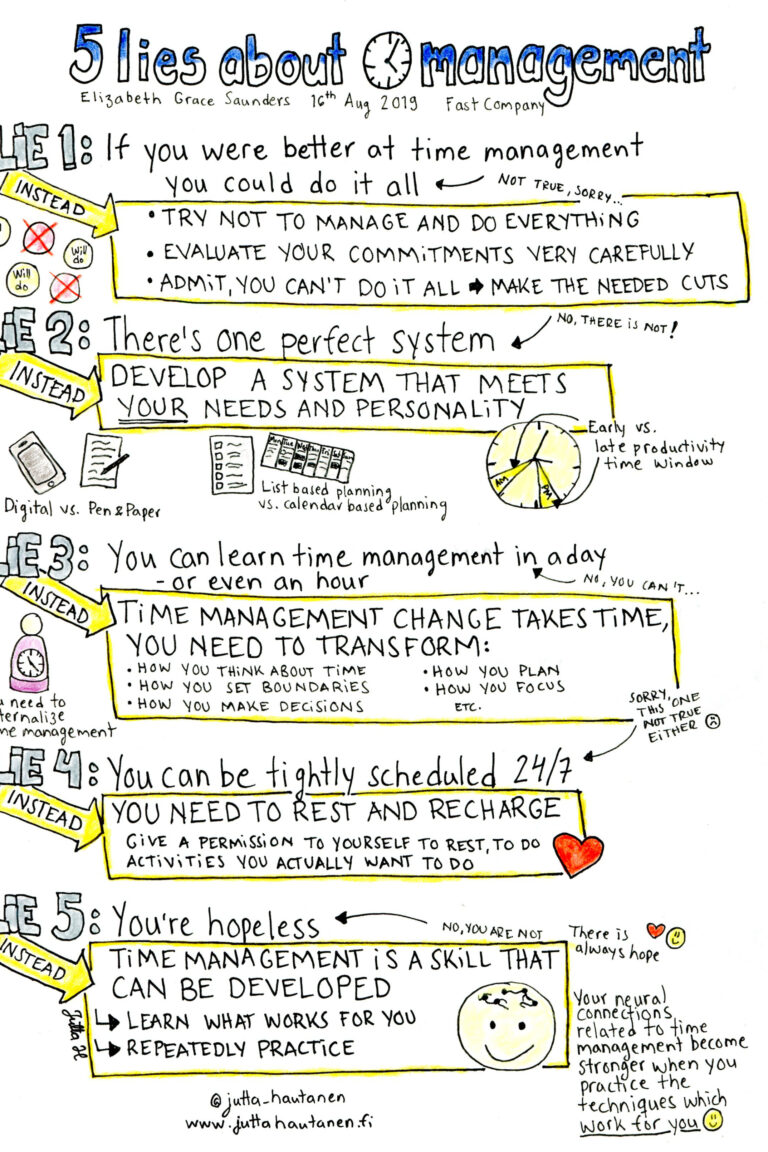 5 lies about management
Elizabeth Grace Saunders 16th Aug 2019 Fast Company
LiE 1: If you were better at time management
you could do it all
NOT TRUE, SORRY...
INSTEAD
• TRY NOT TO MANAGE AND DO EVERYTHiNG
• EVALUATE YOUR COMMiTMENTS VERY CAREFULLY
• ADMiT, YOU CAN'T DO iT ALL ➡ MAKE THE NEEDED CUTS
Will do
Will do
LiE 2: There's one perfect system
NO, THERE iS NOT!
INSTEAD
DEVELOP A SYSTEM THAT MEETS
YOUR NEEDS AND PERSONALiTY
Mon Tue Wed Thu Fri Sat Sun
AM
PM
Early vs.
late productivity
time window
Digital vs. Pen & Paper
List based planning
vs. calendar based planning
LiE 3: You can learn time management in a day
- or even an hour
NO, YOU CAN'T...
INSTEAD
TiME MANAGEMENT CHANGE TAKES TiME,
YOU NEED TO TRANSFORM:
• HOW YOU THiNK ABOUT TiME
• HOW YOU SET BOUNDARiES
• HOW YOU MAKE DECiSiONS
• HOW YOU PLAN
• HOW YOU FOCUS
ETC.
need to
ternalize
me management
SORRY,
THiS ONE
NOT TRUE
EiTHER
LiE 4: You can be tightly scheduled 24/7
INSTEAD
YOU NEED TO REST AND RECHARGE
GiVE A PERMiSSiON TO YOURSELF TO REST, TO DO
ACTiViTiES YOU ACTUALLY WANT TO DO
LiE 5: You're hopeless
NO, YOU ARE NOT
There is
always hope
INSTEAD
TiME MANAGEMENT iS A SKiLL THAT
CAN BE DEVELOPED
↳ LEARN WHAT WORKS FOR YOU
↳ REPEATEDLY PRACTiCE
Jutta H
Your neural
connections
related to time
management become
stronger when you
practice the
techniques which
work for you
@jutta_hautanen
www.juttahautanen.fi